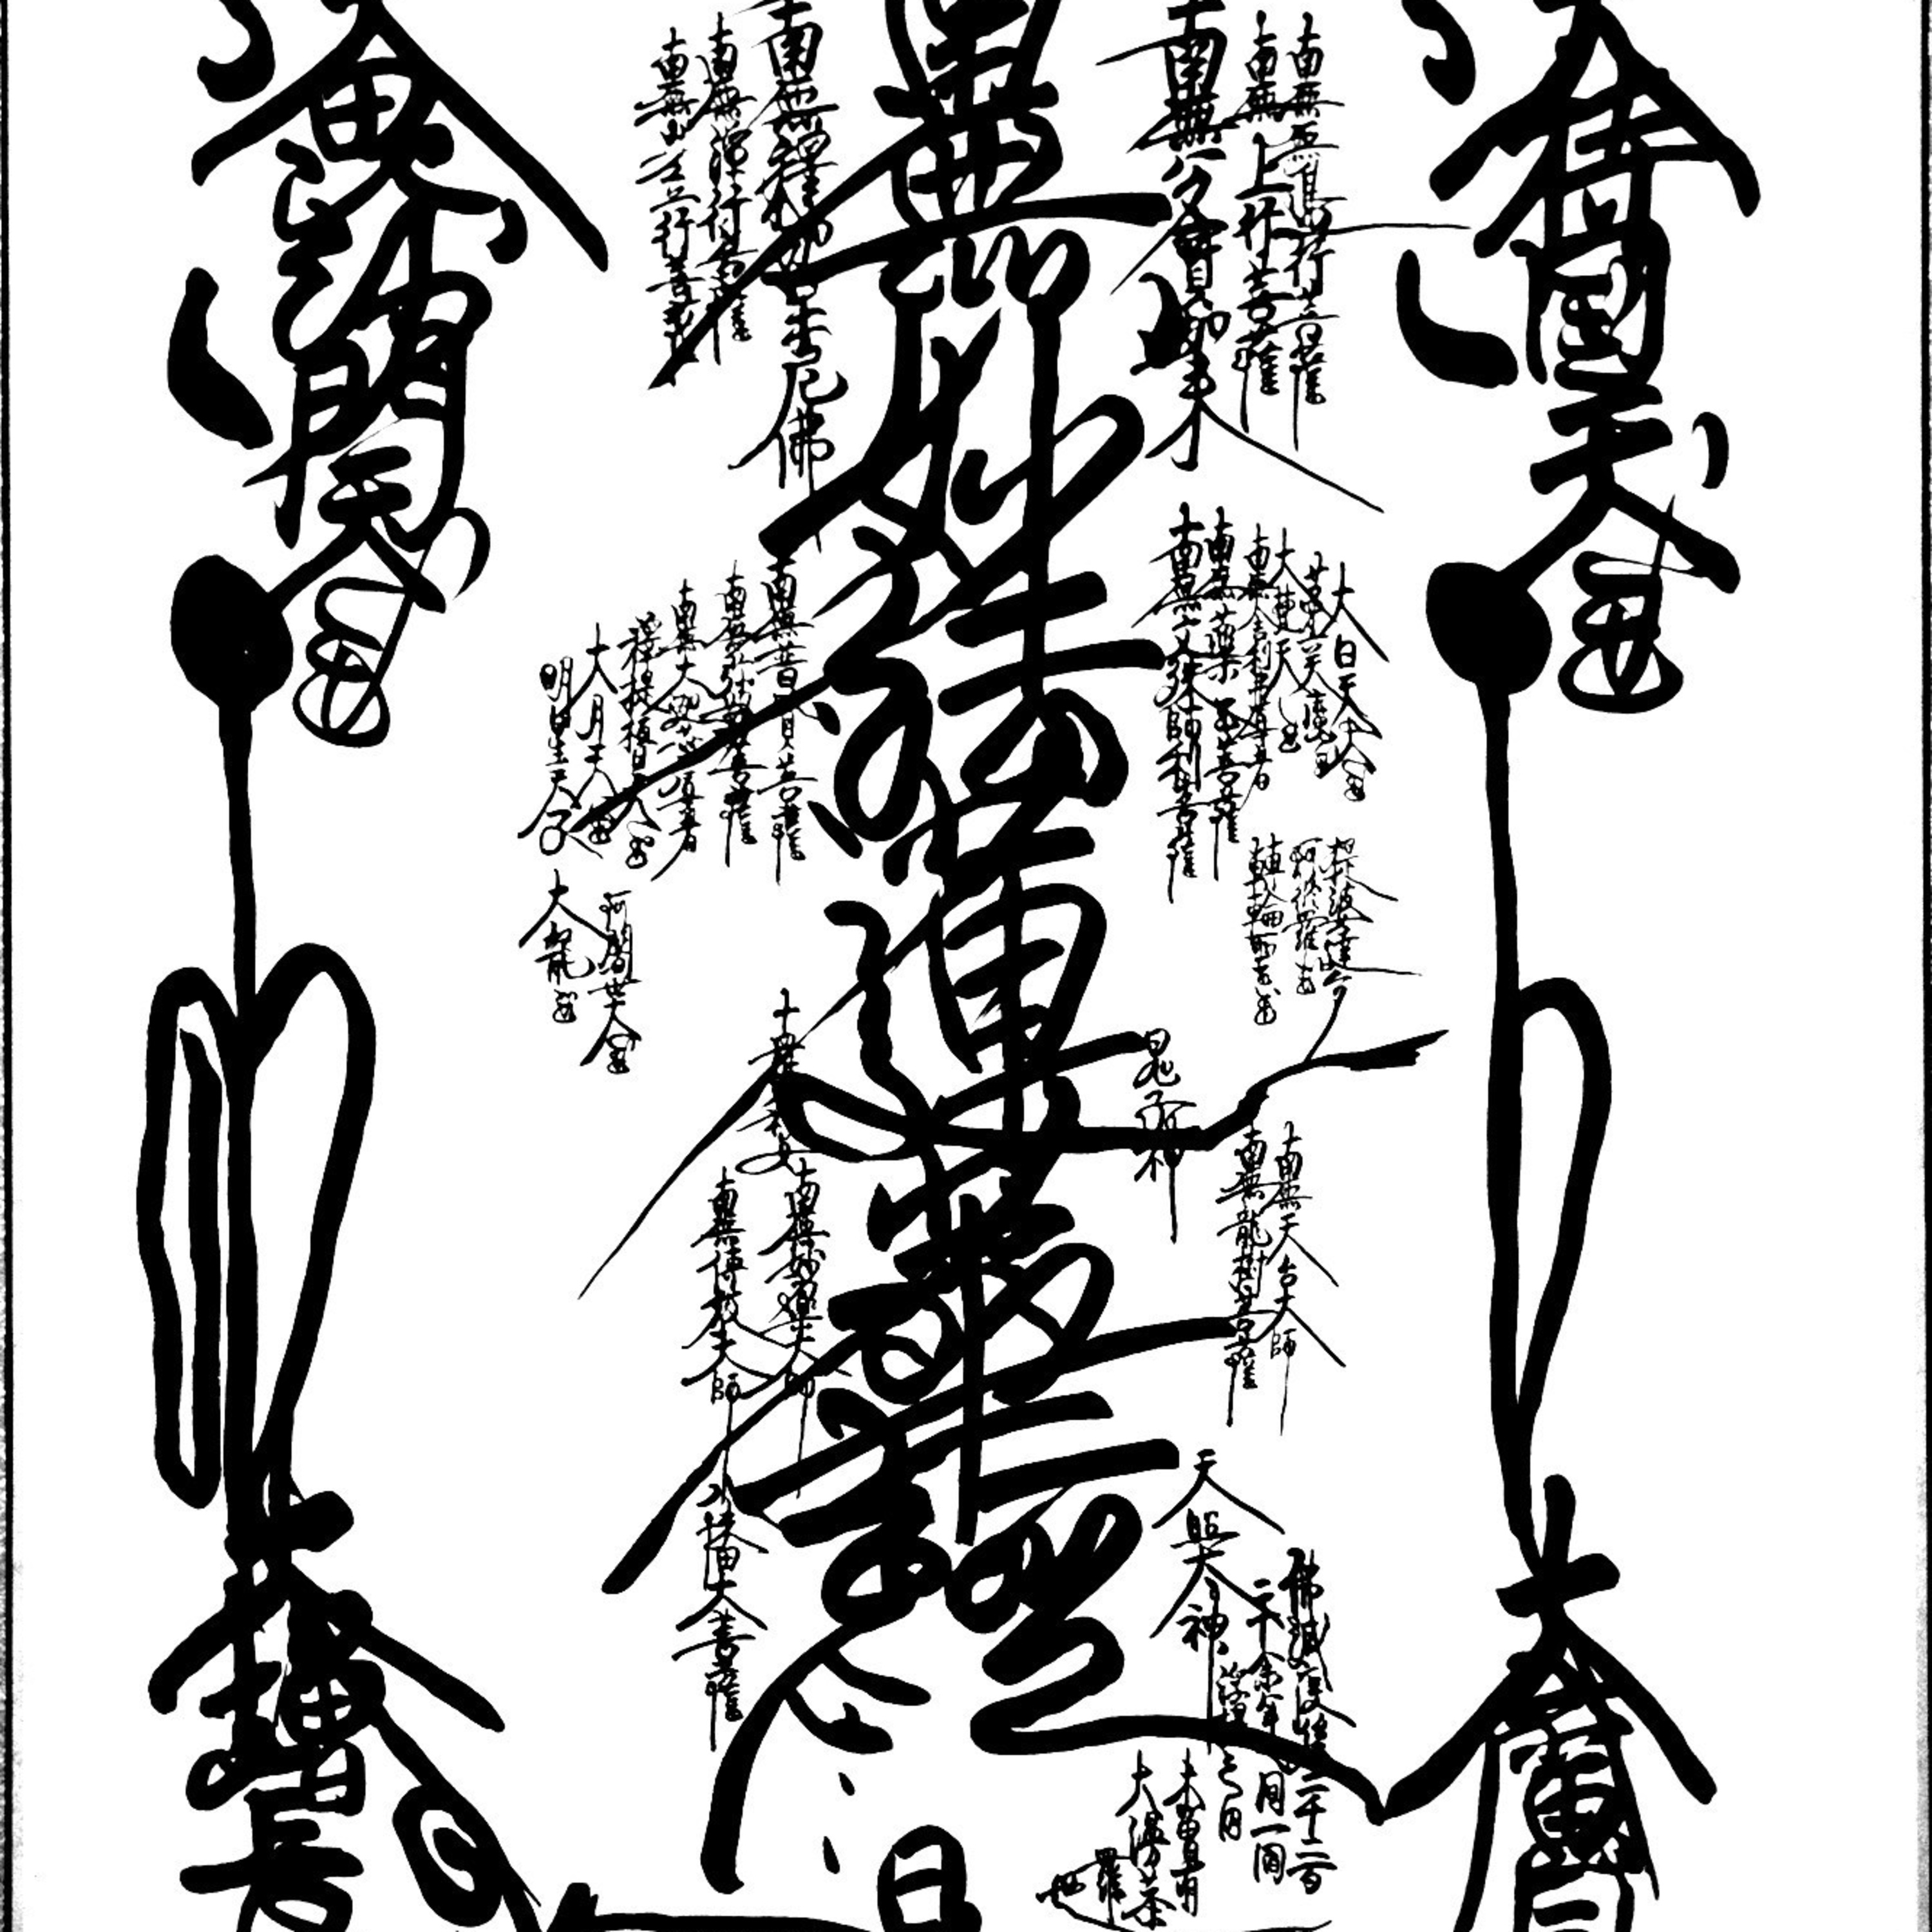 持國天王
南無無邊行菩薩
南無上行菩薩
南無多寶如來
無妙法蓮華經
南無釋迦牟尼佛
南無淨行菩薩
南無安立行菩薩
毘沙門天王
大日天王
第六天魔王
大梵天王
南無舍利弗尊者
南無藥王菩薩
南無文殊師利菩薩
南無普賢菩薩
南無彌勒菩薩
南無大迦葉尊者
釋提桓因大王
大月天王
明星天子
提婆達多
阿修羅王
轉輪聖王
阿闍世大王
大龍王
鬼子母神
十羅刹女
南無天台大師
南無龍樹菩薩
南無妙樂大師
南無傳教大師
大廣目
佛滅度後二千二百
天照大神
未曾有
大漫荼
羅也
日
八幡大菩薩
大增長